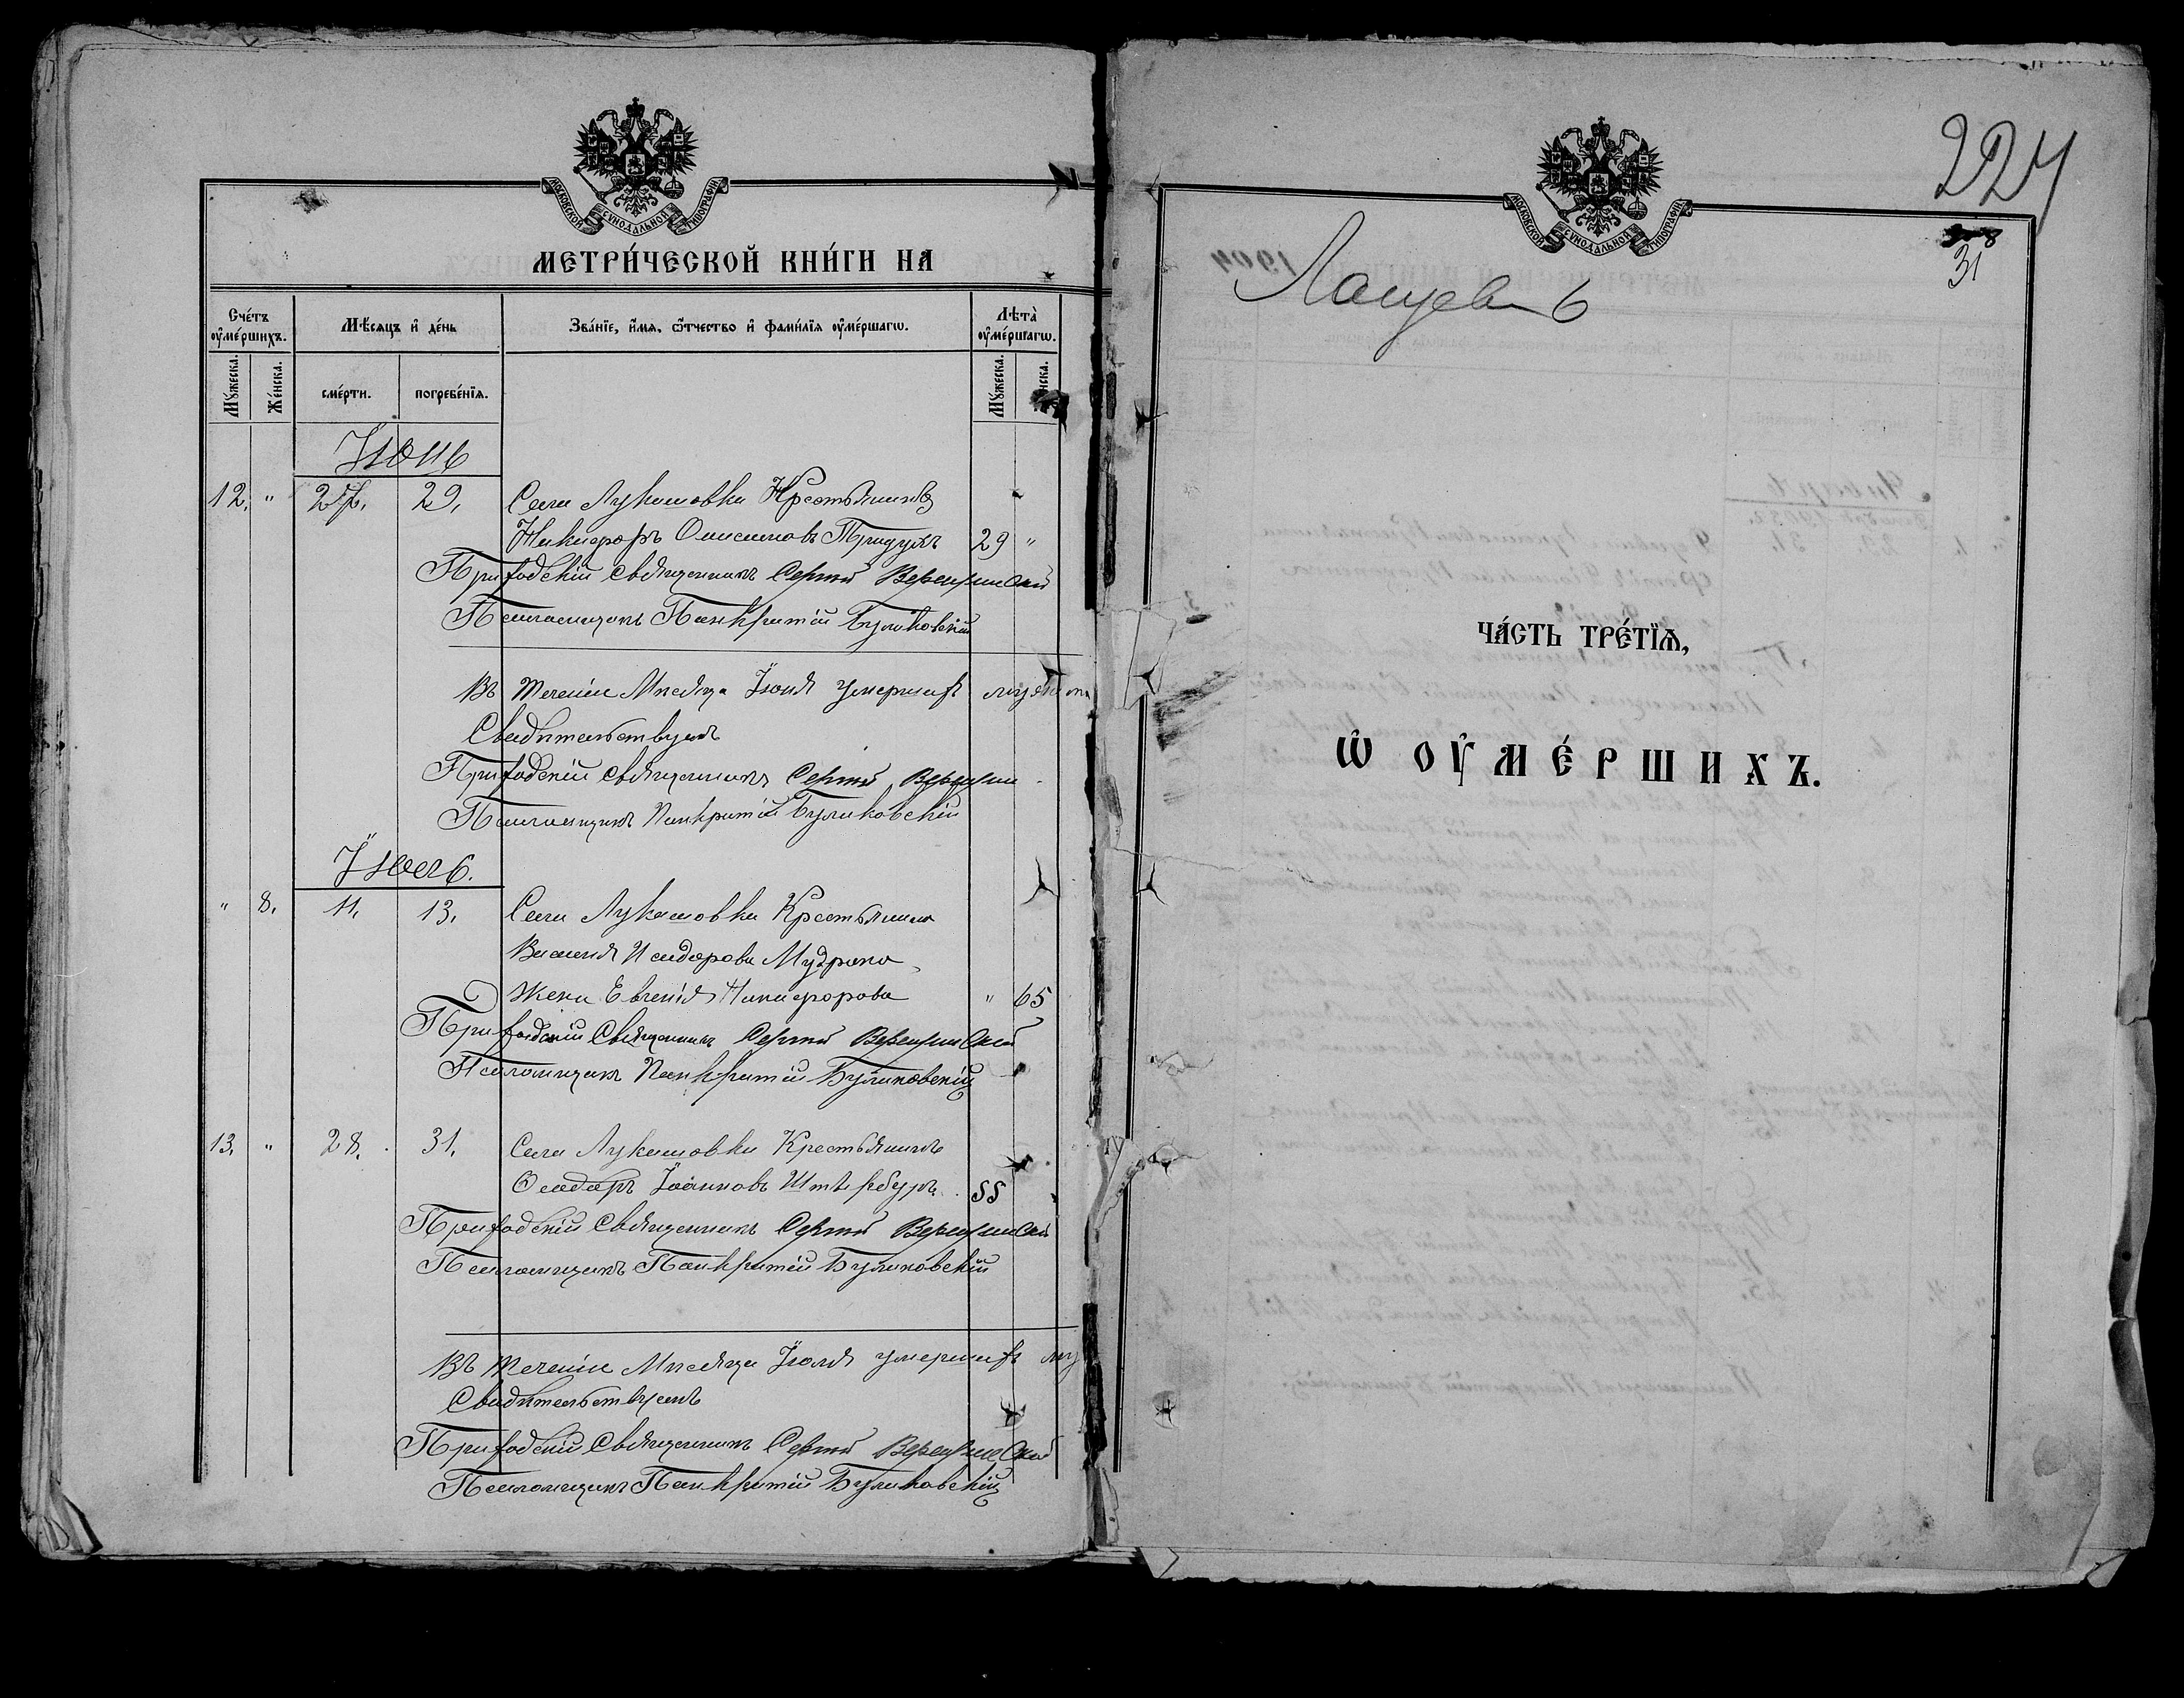 МОСКОВСКОЙ СѴНОДАЛЬНОЙ ТИПОГРАФІИ
МЕТРИ́ЧЕСКОЙ КНИ́ГИ НА
Сче́тъ ᲂу҆ме́ршихъ.
Мѣ́сяцъ и҆ де́нь
Зва́нїе, и҆́мѧ, ѻ҆́тчество и҆ фами́лїѧ ᲂу҆ме́ршагѡ.
Лѣта̀ ᲂу҆ме́ршагѡ.
Мꙋ́жеска.
Же́нска.
сме́рти.
погребе́нїѧ.
Мꙋ́жеска.
нска.
Іюнь
12. " 27. 29. Села Лукашовки Крестьянинъ
Никифоръ Онисимовъ 29 "
Приходскій Священникъ Сергій
Псаломщикъ Панкратій Буликовскій
Въ теченіи Мѣсяца Іюня умершихъ
Свидѣтельствуемъ
Приходскій Священникъ Сергій
Псаломщикъ Панкратій Буликовскій
Іюль.
" 8. 11. 13. Села Лукашовки Крестьянина
Василія Исидорова Мудрака
жена Евгенія Никифорова " 65
Приходскій Священникъ Сергій
Псаломщикъ Панкратій Буликовскій
13. " 28. 31. Села Лукашовки Крестьянинъ
Ѳеодоръ Іоанновъ Штербуръ 55
Приходскій Священникъ Сергій
Псаломщикъ Панкратій Буликовскій
Въ теченіи Мѣсяца Іюля умершихъ му
Свидѣтельствуемъ
Приходскій Священникъ Сергій
Псаломщикъ Панкратій Буликовскій
224
МОСКОВСКОЙ СѴНОДАЛЬНОЙ ТИПОГРАФІИ
31
ЧА́СТЬ ТРЕ́ТЇѦ,
Ѡ҆ ОУ҆МЕ́РШИХЪ.